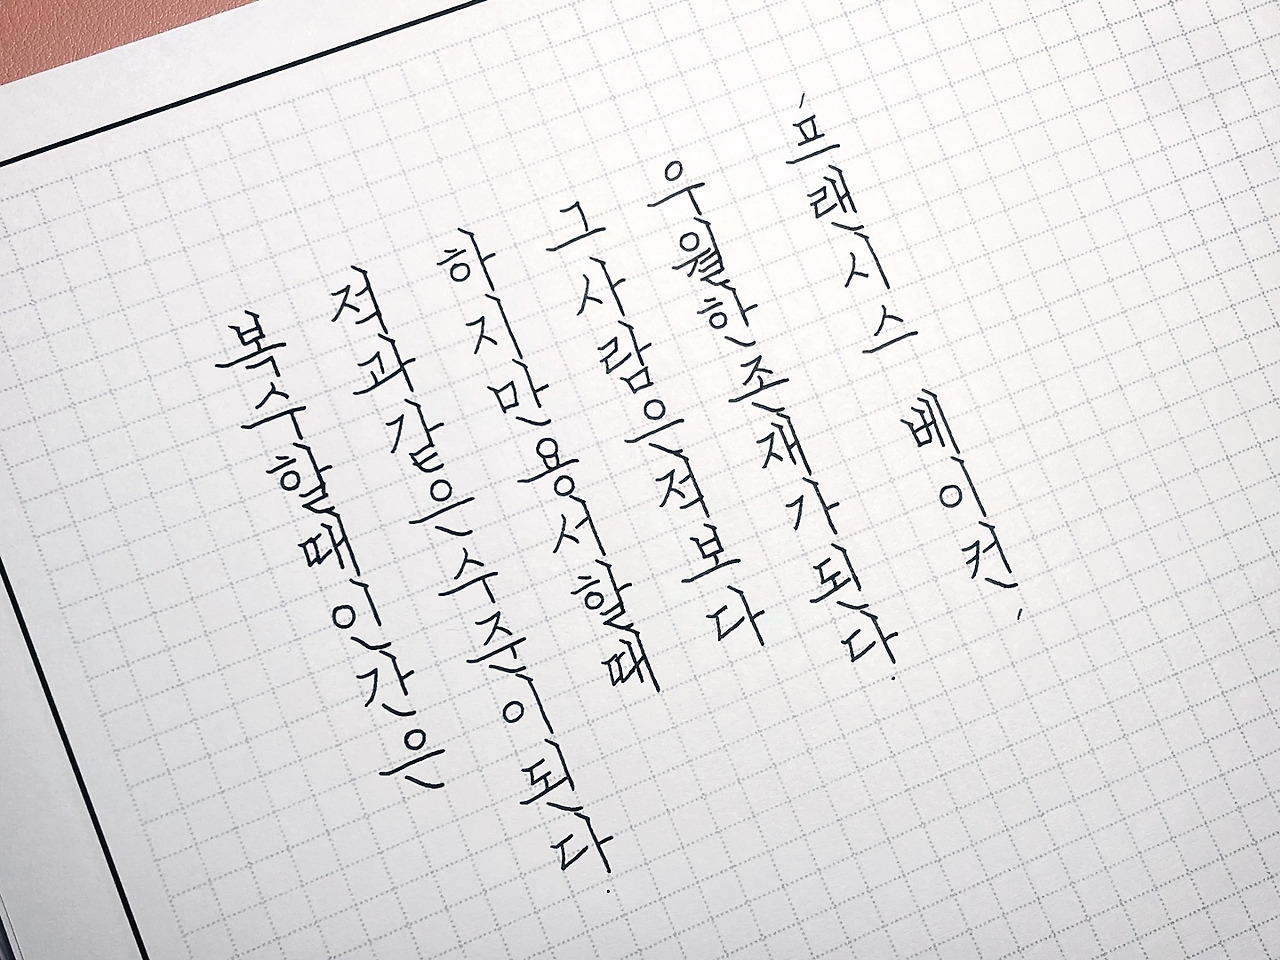 복수할때인간은
적과같은수준이된다.
하지만용서할때
그사람은적보다
우월한존재가된다.
'프랜시스 베이컨'